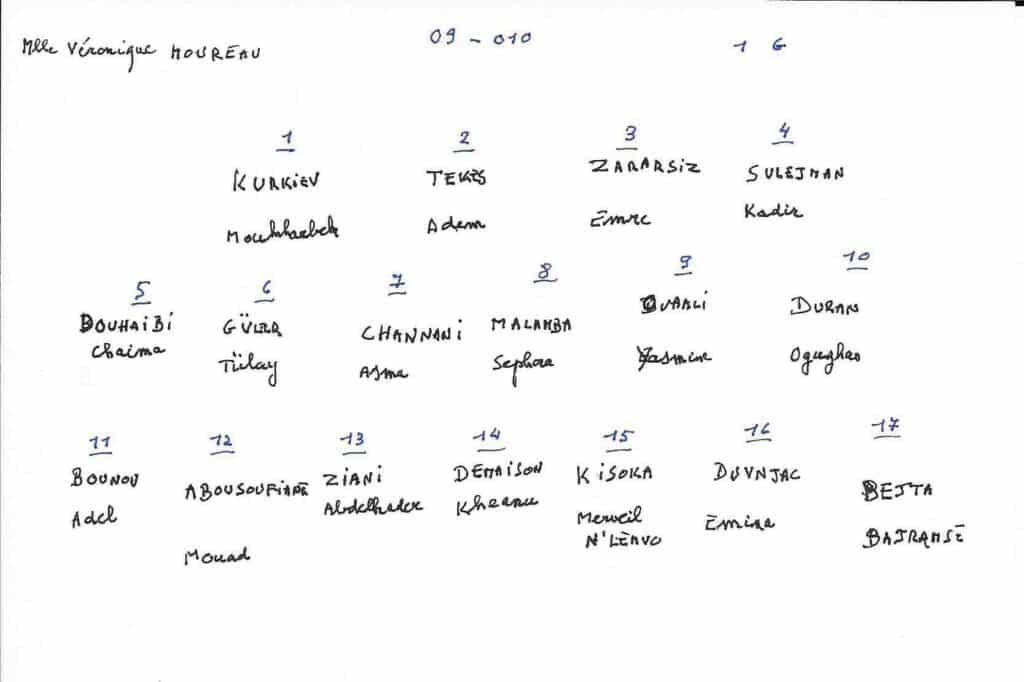 Mlle Véronique MOUREAU 09 - 010 1 G
1 2 3 4
KURKIEV TEKES ZARARSIZ SULEJMAN
Moukharbek Adem Emre Kadir
5 6 7 8 9 10
DOUHAIBI GÜLER CHANNANI MALAMBA OUAALI DURAN
Chaima Tülay Asma Sephora Yasmine Ogughan
11 12 13 14 15 16 17
BOUNOU ABOUSOUFIANE ZIANI DEMAISON KISOKA DUVNJAC BEJTA
Adel Mouad Abdelkader Kheanu Merveil Emina BAJRAMSE
N'LENVO